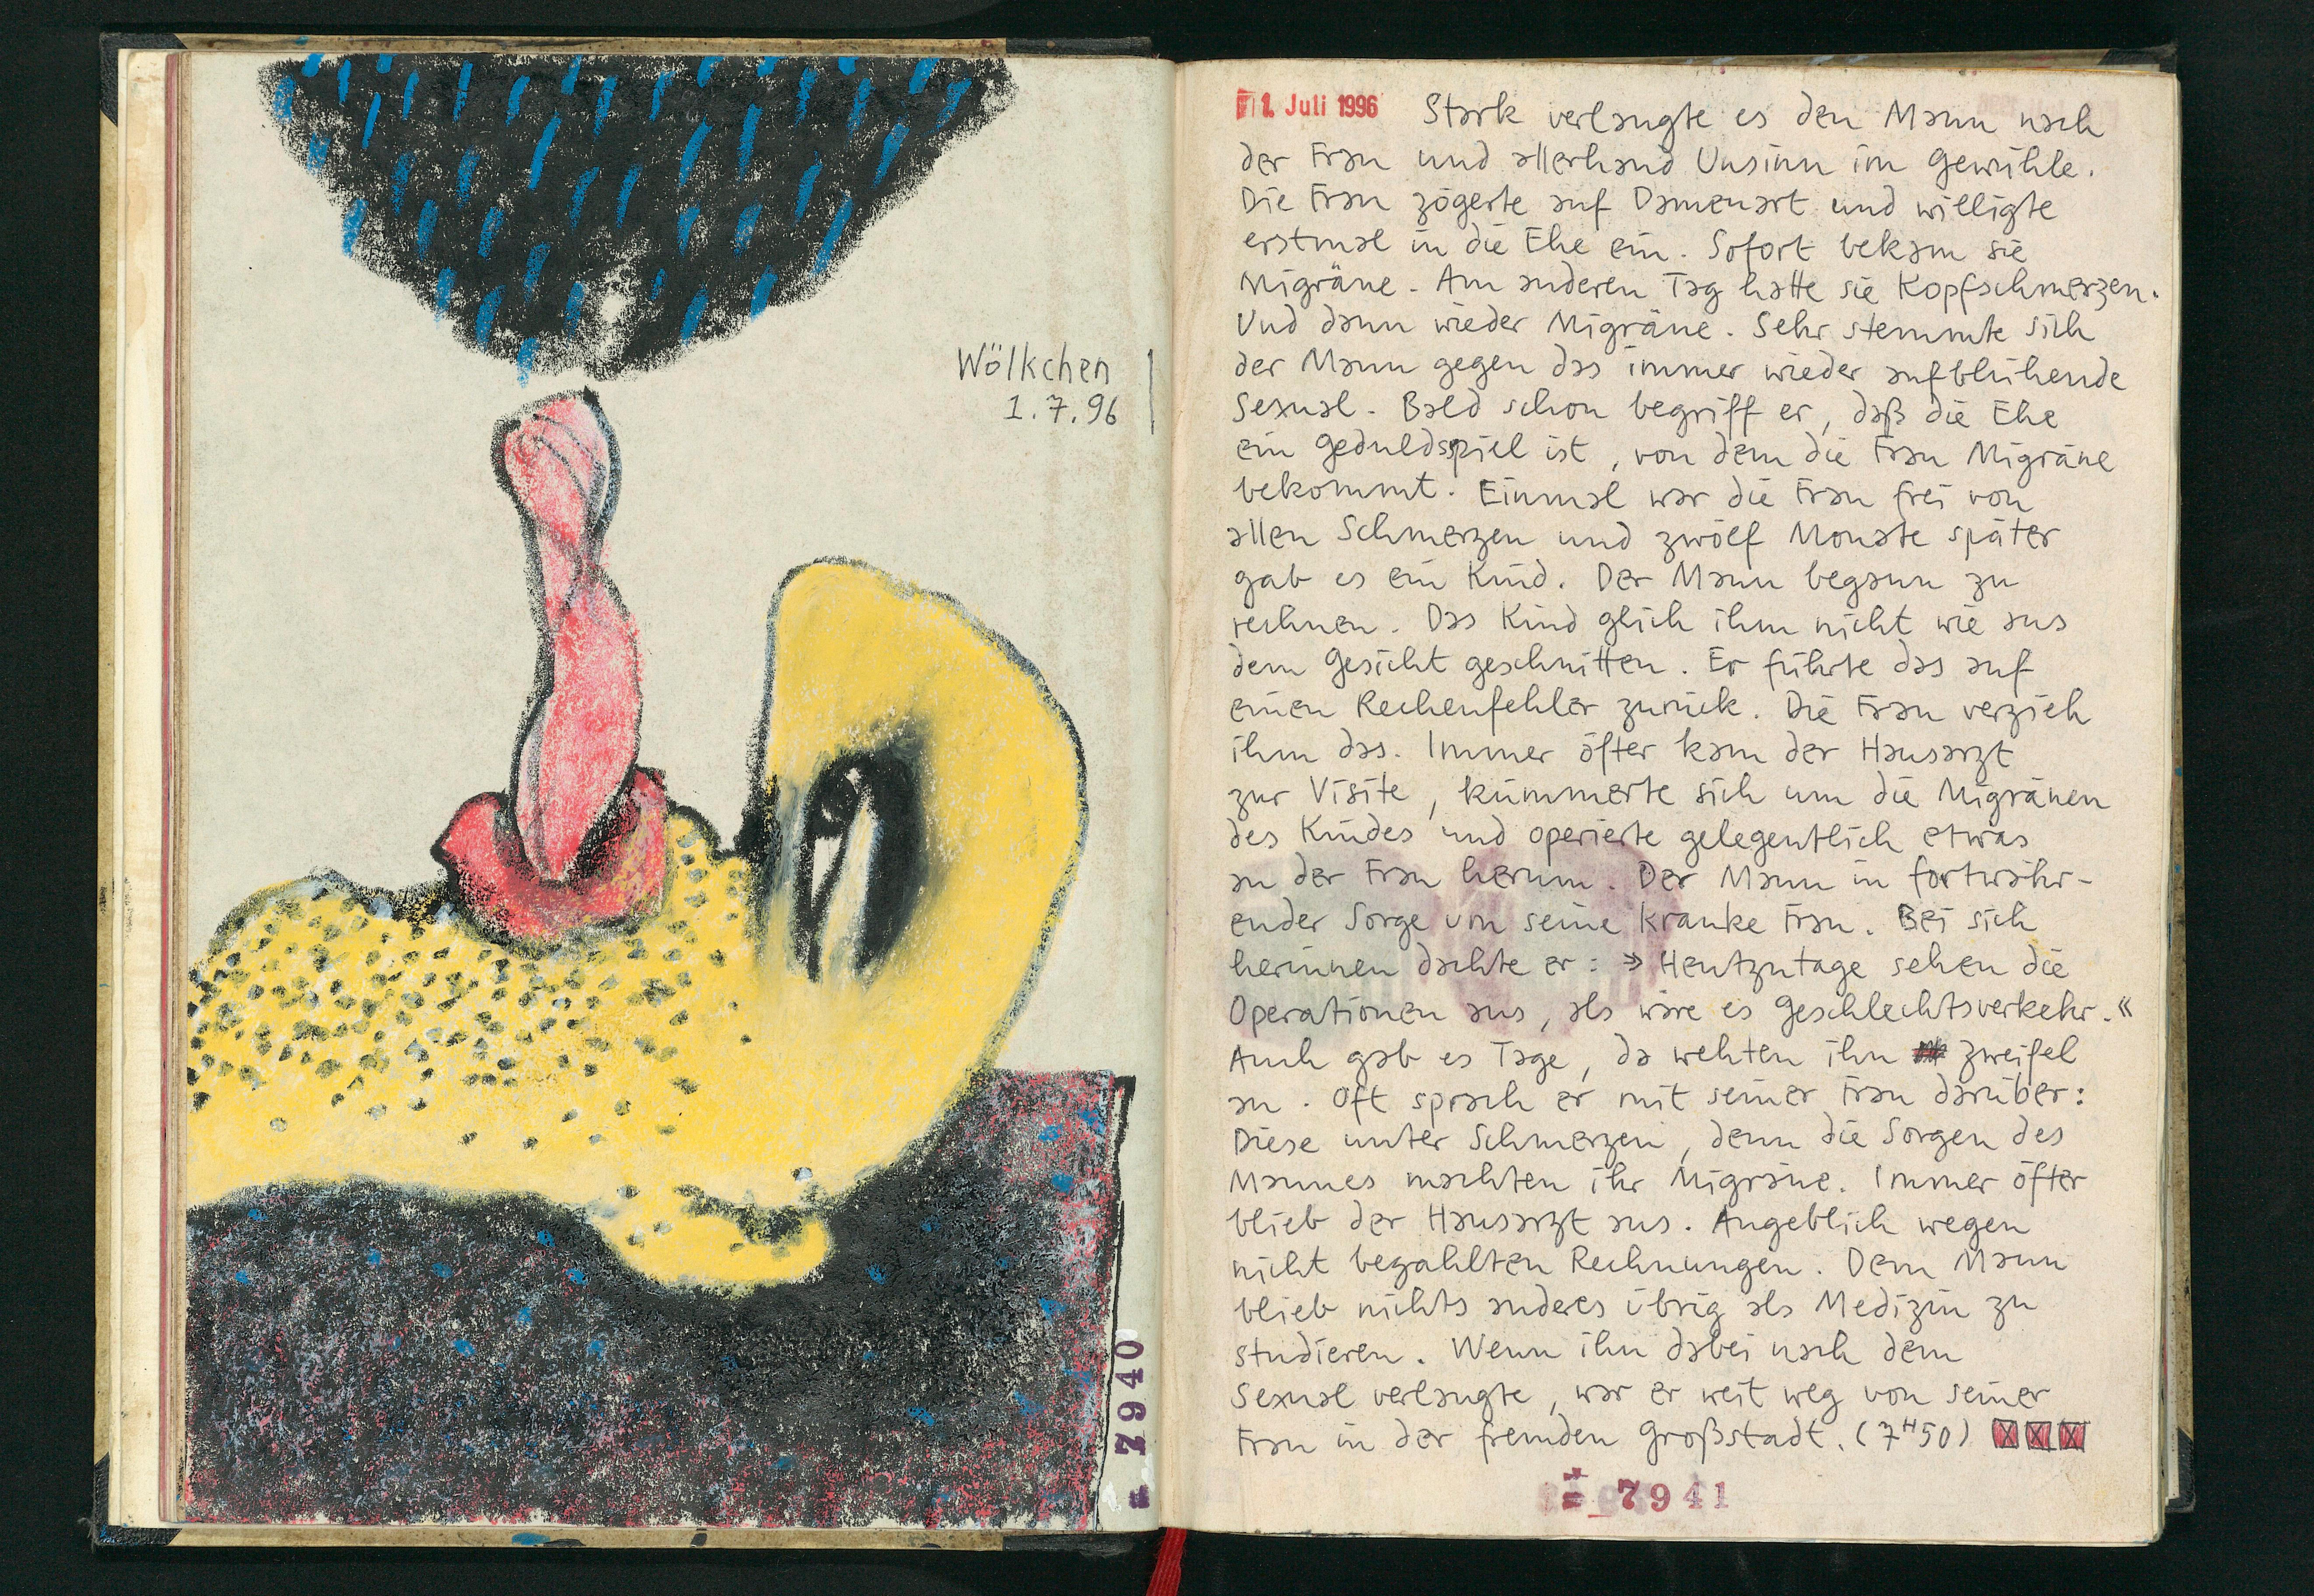 Wölkchen
1.7.96
7940
1. Juli 1996 Stark verlangte es den Mann nach
der Frau und allerhand Unsinn im Gewühle.
Die Frau zögerte auf Damenart und willigte
erstmal in die Ehe ein. Sofort bekam sie
Migräne. Am anderen Tag hatte sie Kopfschmerzen.
Und dann wieder Migräne. Sehr stemmte sich
der Mann gegen das immer wieder aufblühende
Sexual. Bald schon begriff er, daß die Ehe
ein Geduldspiel ist, von dem die Frau Migräne
bekommt. Einmal war die Frau frei von
allen Schmerzen und zwölf Monate später
gab es ein Kind. Der Mann begann zu
rechnen. Das Kind glich ihm nicht wie aus
dem Gesicht geschnitten. Er führte das auf
einen Rechenfehler zurück. Die Frau verzieh
ihm das. Immer öfter kam der Hausarzt
zur Visite, kümmerte sich um die Migränen
des Kindes und operierte gelegentlich etwas
an der Frau herum. Der Mann in fortwähr-
ender Sorge um seine kranke Frau. Bei sich
herinnen dachte er: » Heutzutage sehen die
Operationen aus, als wäre es Geschlechtsverkehr.«
Auch gab es Tage, da wehten ihn Zweifel
an. Oft sprach er mit seiner Frau darüber:
Diese unter Schmerzen, denn die Sorgen des
Mannes machten ihr Migräne. Immer öfter
blieb der Hausarzt aus. Angeblich wegen
nicht bezahlten Rechnungen. Dem Mann
blieb nichts anderes übrig als Medizin zu
studieren. Wenn ihn dabei nach dem
Sexual verlangte, war er weit weg von seiner
Frau in der fremden Großstadt. (7H50)
7941